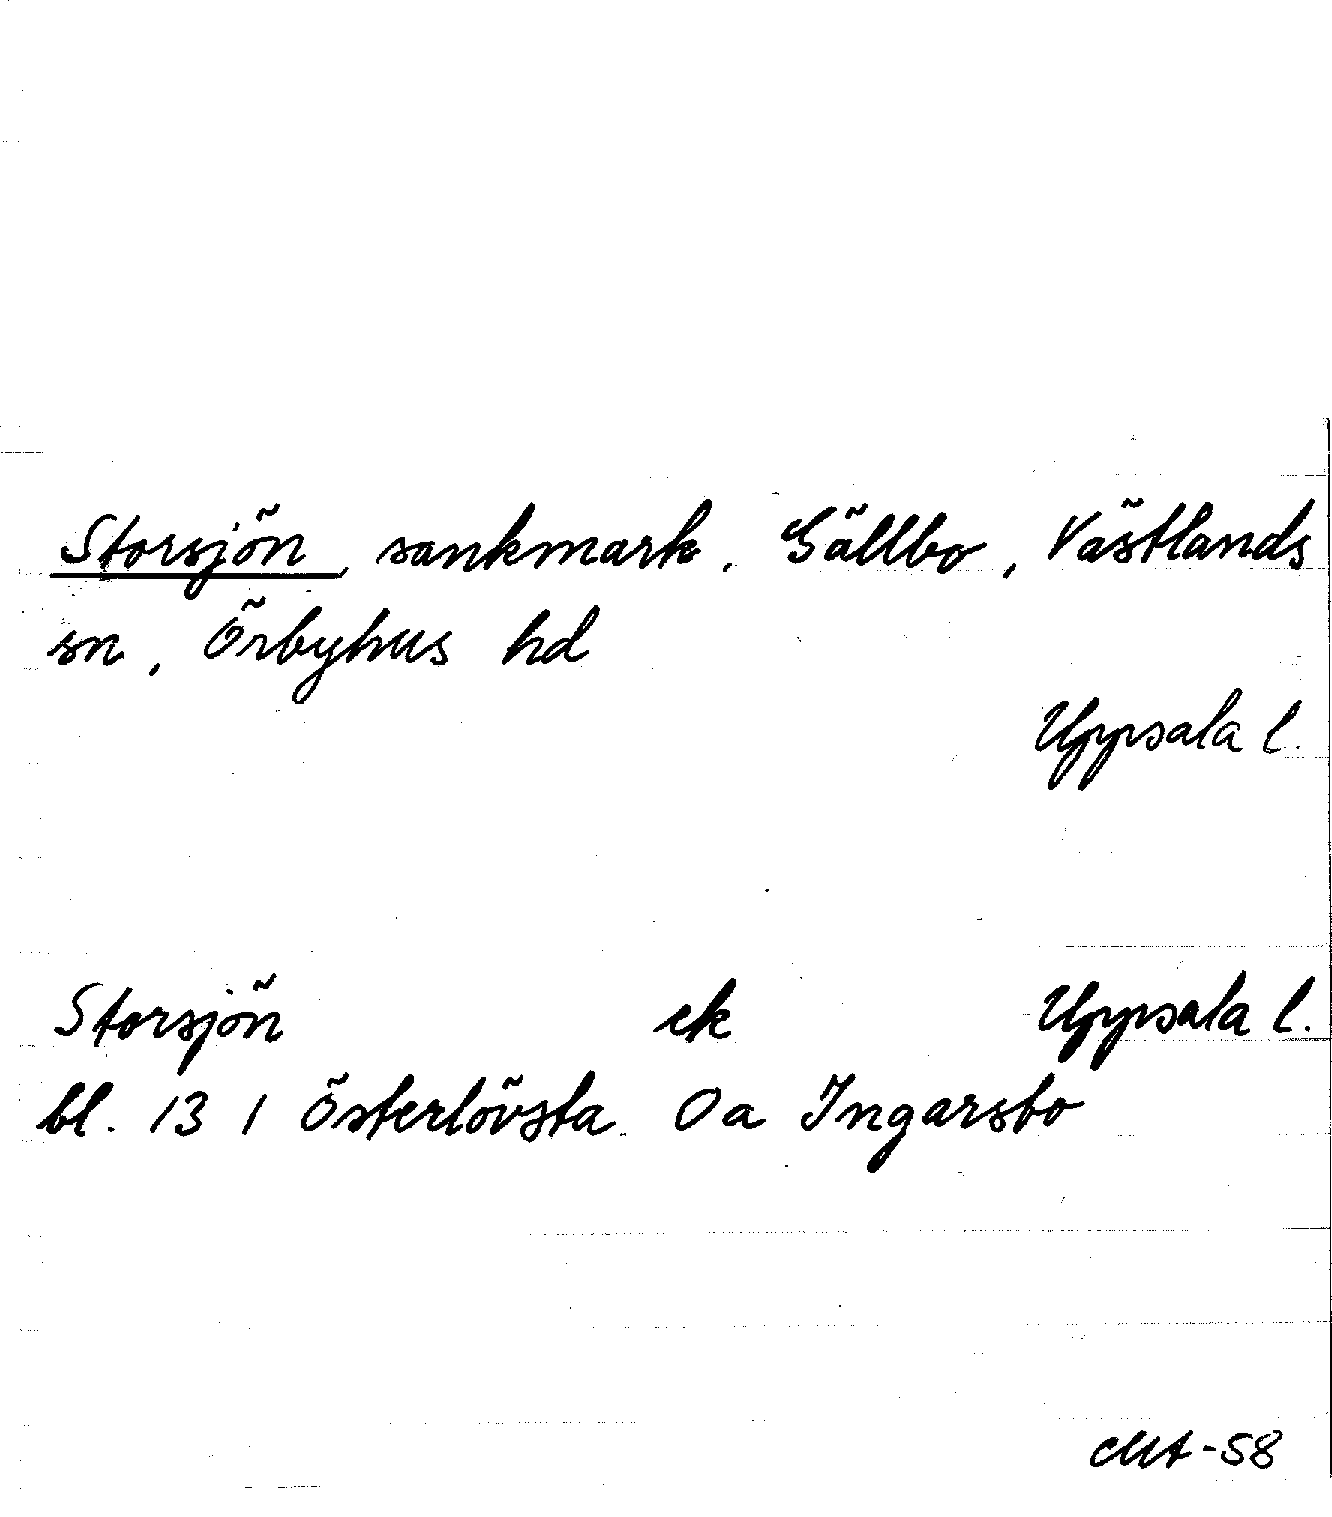 Storsjön, sankmark, Gällbo, Västlands
sn, Örbyhus hd
Uppsala l.
Storsjön ek Uppsala l.
bl. 13 1 Österlövsta Oa Ingarsbo
-58